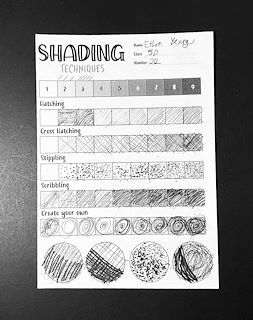 SHADING
TECHNIQUES
Name Ethan
Class 5D
Number 20
1 2 3 4 5 6 7 8 9
Hatching
Cross Hatching
Stippling
Scribbling
Create your own